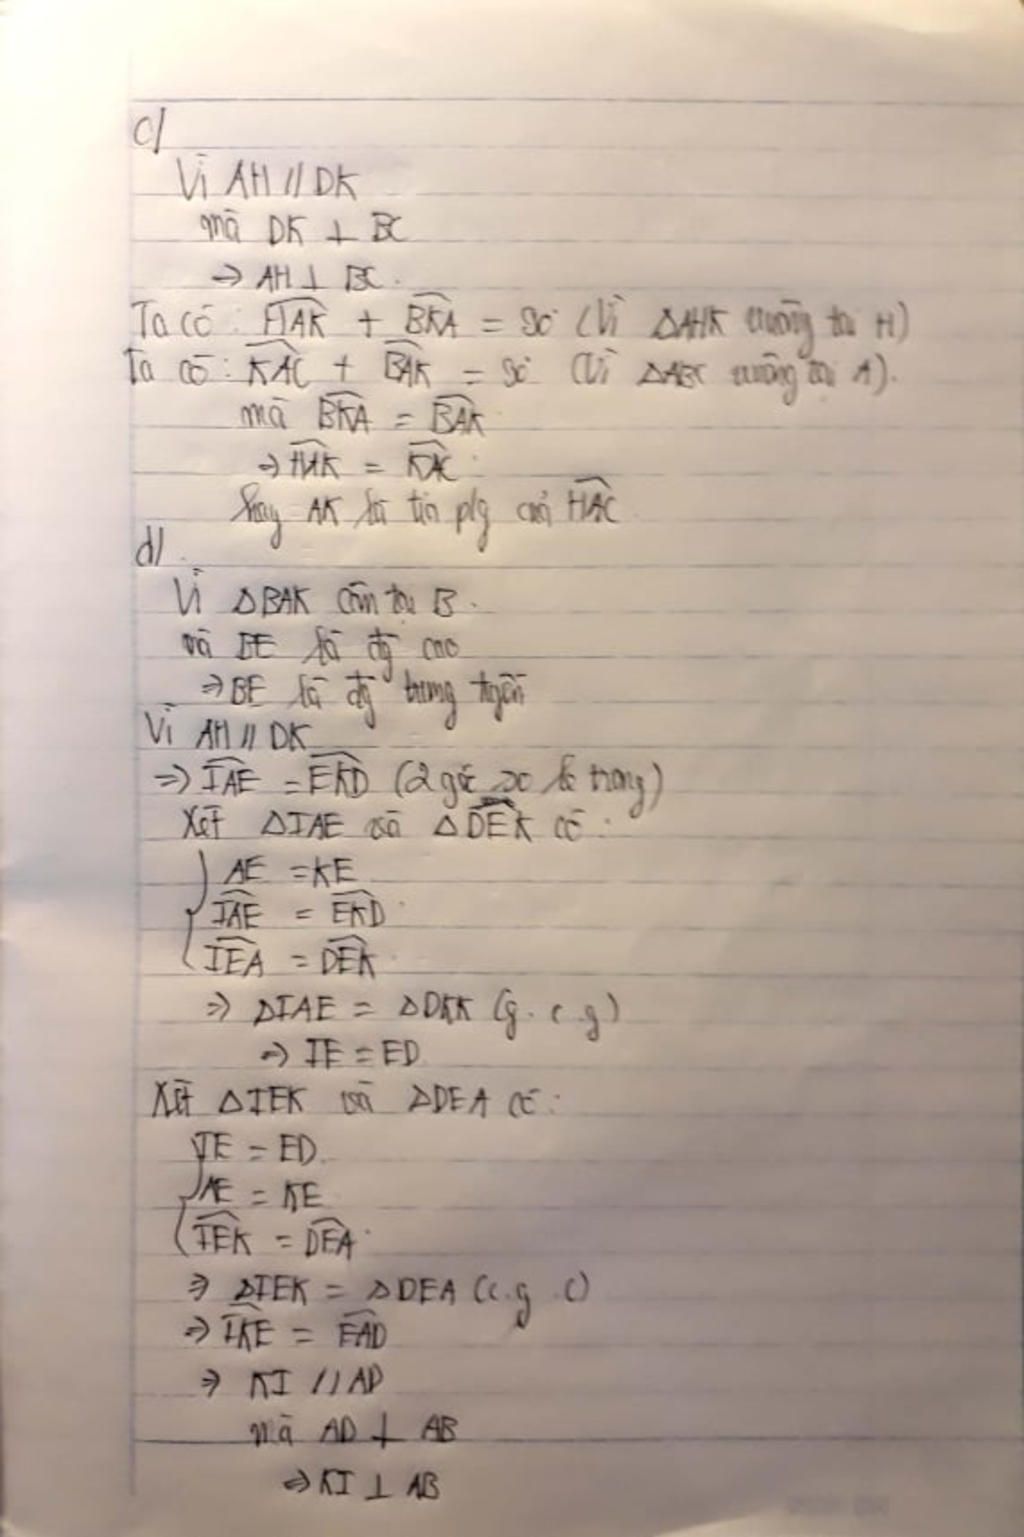 c/
Vì AH // DK
mà DK ⊥ BC
⇒ AH ⊥ BC.
Ta có: \widehat{HAK} + \widehat{BKA} = 90° (Vì ΔAHK vuông tại H)
Ta có: \widehat{KAC} + \widehat{BAK} = 90° (Vì ΔABC vuông tại A).
mà \widehat{BKA} = \widehat{BAK}
⇒ \widehat{HAK} = \widehat{KAC}.
hay AK là tia p/g của \widehat{HAC}
d/.
Vì ΔBAK cân tại B.
mà BE là đg cao
⇒ BE là đg trung tuyến
Vì AH // DK
⇒ \widehat{IAE} = \widehat{EKD} (2 góc so le trong)
Xét ΔIAE và ΔDEK có:
AE = KE
\widehat{IAE} = \widehat{EKD}.
\widehat{IEA} = \widehat{DEK}.
⇒ ΔIAE = ΔDKK (g.c.g)
⇒ IE = ED
Xét ΔIEK và ΔDEA có:
IE = ED.
AE = KE
\widehat{IEK} = \widehat{DEA}.
⇒ ΔIEK = ΔDEA (c.g.c)
⇒ \widehat{IKE} = \widehat{EAD}
⇒ KI // AD
mà AD ⊥ AB
⇒ KI ⊥ AB